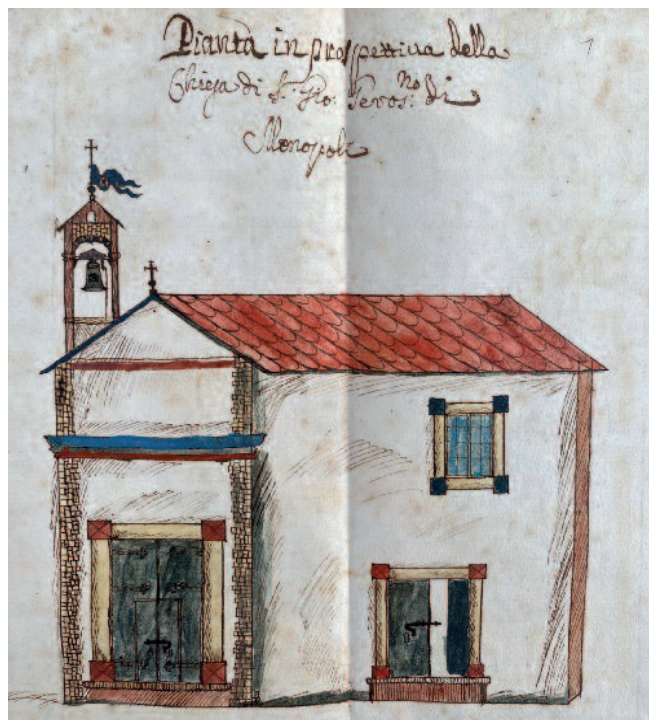 Pianta in prospettiua della
Chiesa di S. Gio: Seros:no di
Monopoli